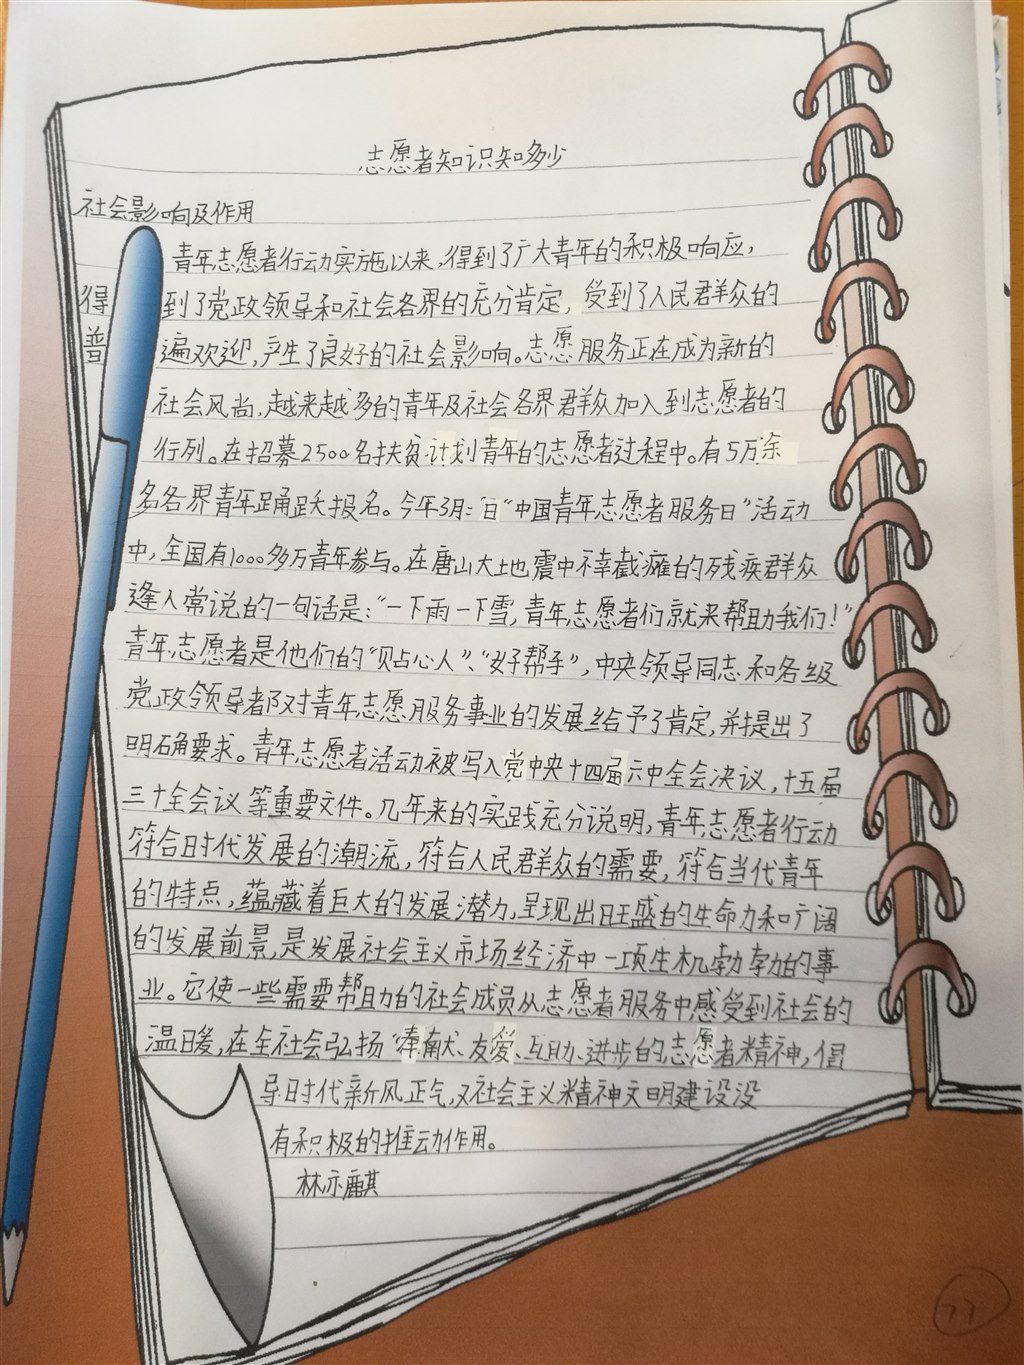 志愿者知识知多少
社会影响及作用
青年志愿者行动实施以来,得到了广大青年的积极响应,
得到了党政领导和社会各界的充分肯定,受到了人民群众的
普遍欢迎,产生了良好的社会影响。志愿服务正在成为新的
社会风尚,越来越多的青年及社会各界群众加入到志愿者的
行列。在招募2500名扶贫计划青年的志愿者过程中。有5万余
名各界青年踊跃报名。今年3月:"日"中国青年志愿者服务日"活动
中,全国有1000多万青年参与。在唐山大地震中不幸截瘫的残疾群众
逢人常说的一句话是:"一下雨一下雪,青年志愿者们就来帮助我们!"
青年志愿者是他们的"贴心人"、"好帮手",中央领导同志和各级
党政领导者都对青年志愿服务事业的发展给予了肯定,并提出了
明确要求。青年志愿者活动被写入党中央十四届六中全会决议,十五届
三十全会议等重要文件。几年来的实践充分说明,青年志愿者行动
符合时代发展的潮流,符合人民群众的需要,符合当代青年
的特点,蕴藏着巨大的发展潜力,呈现出旺盛的生命力和广阔
的发展前景,是发展社会主义市场经济中一项生机勃勃的事
业。它使一些需要帮助的社会成员从志愿者服务中感受到社会的
温暖,在全社会弘扬"奉献、友爱、互助、进步的志愿者精神,倡
导时代新风正气,对社会主义精神文明建设没
有积极的推动作用。
林亦麒
77